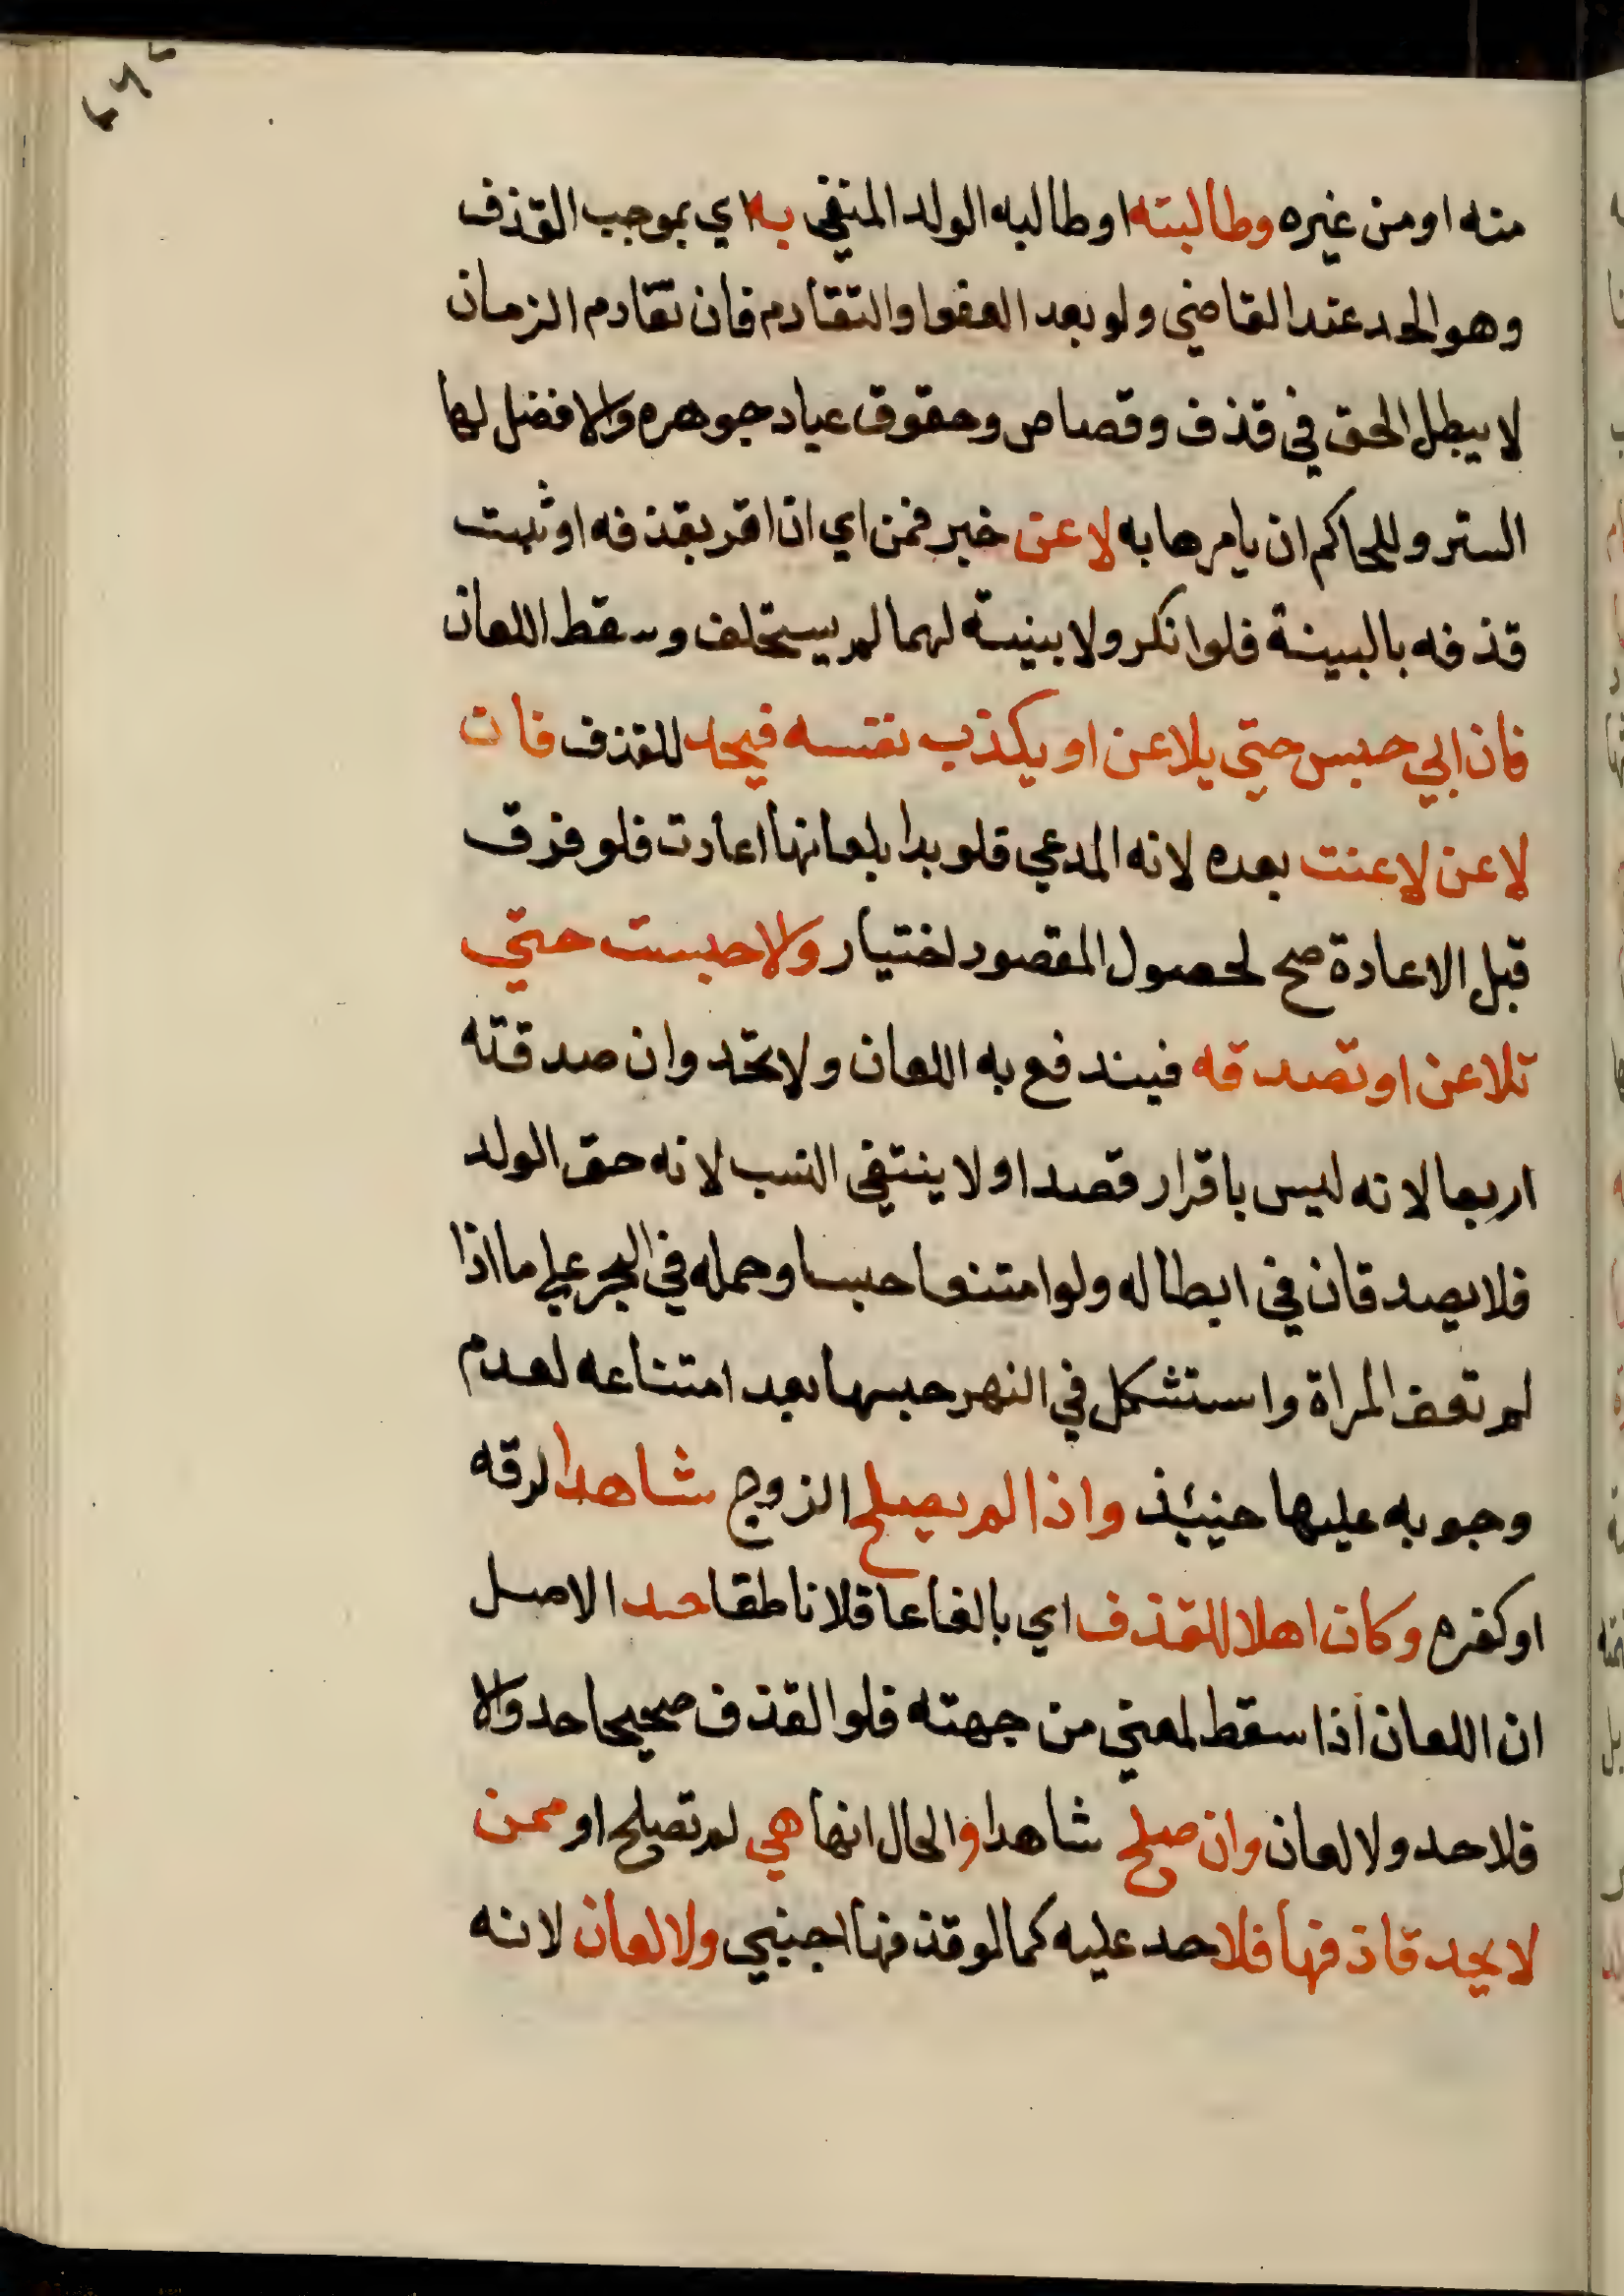 منه او من غيره وطالبته او طالبه الولد المنفي به اي بموجب القذف
وهو الحد عند القاضي ولو بعد العفو او التقادم فان تقادم الزمان
لا يبطل الحق في قذف وقصاص وحقوق عباد جوهره والافضل لها
الستر وللحاكم ان يامرها به لاعن خبر فمن اي ان اقر بقذفه او ثبت
قذفه بالبينة فلو انكر ولا بينة لهما لم يستحلف وسقط اللعان
فان ابي حبس حتي يلاعن او يكذب نفسه فيحد للقذف فان
لاعن لاعنت بعده لانه المدعي فلو بدا بلعانها اعادت فلو فرق
قبل الاعادة صح لحصول المقصود اختيار والا حبست حتي
تلاعن او تصدقه فيندفع به اللعان ولا تحد وان صدقته
اربعا لانه ليس باقرار قصدا ولا ينتفي النسب لانه حق الولد
فلا يصدقان في ابطاله ولو امتنعا حبسا وحمله في البحر علي ما اذا
لم تعف المراة واستشكل في النهر حبسها بعد امتناعه لعدم
وجوبه عليها حينئذ واذا لم يصلح الزوج شاهدا لرقه
او كفره وكان اهلا للقذف اي بالغا عاقلا ناطقا حد الاصل
ان اللعان اذا سقط لمعني من جهته فلو القذف صحيحا حد والا
فلا حد ولا لعان وان صلح شاهدا والحال انها هي لم تصلح او ممن
لا يحد قاذفها فلا حد عليه كما لو قذفها اجنبي ولا لعان لانه